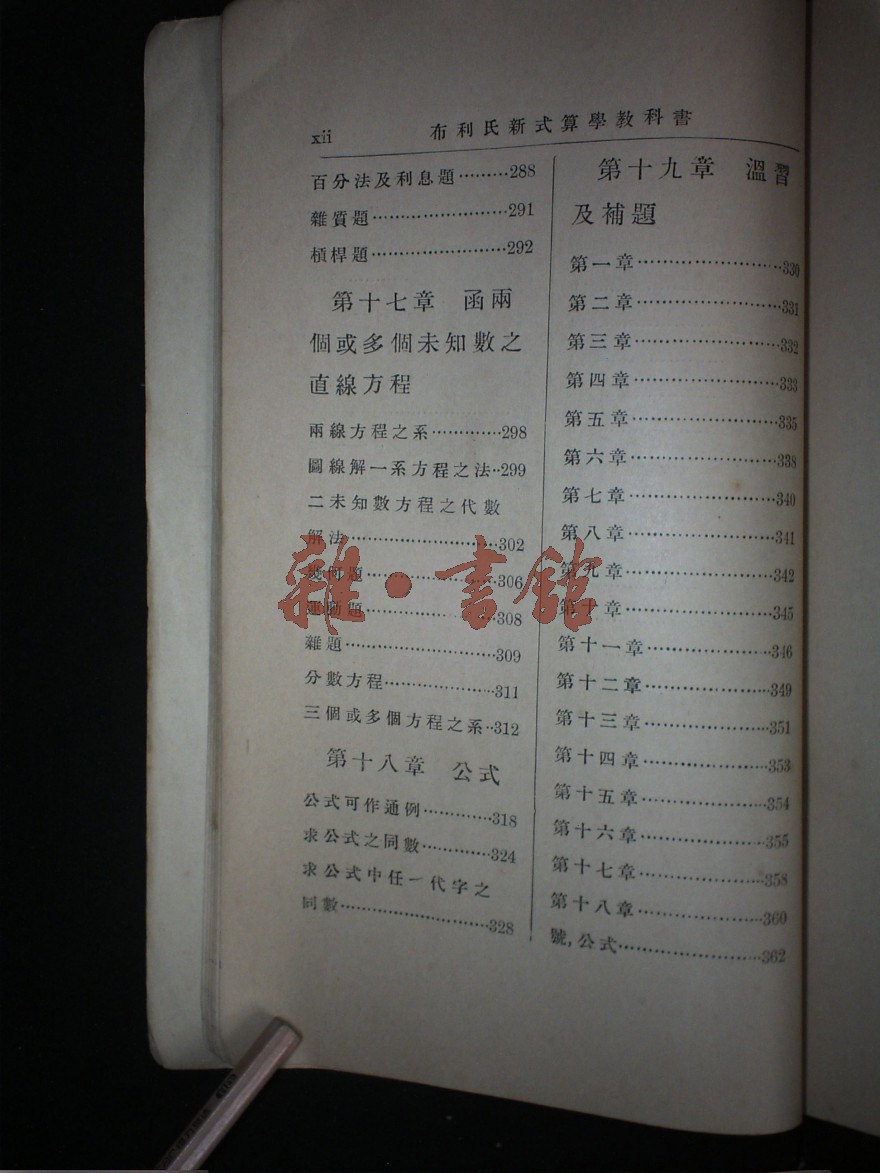 xii
布利氏新式算學教科書
百分法及利息題………288
雜質題……………………291
槓桿題……………………292
第十七章 函兩
個或多個未知數之
直線方程
兩線方程之系…………298
圖線解一系方程之法…299
二未知數方程之代數
解法………………………302
幾何題……………………306
運動題……………………308
雜題………………………309
分數方程…………………311
三個或多個方程之系…312
第十八章 公式
公式可作通例…………318
求公式之同數…………324
求公式中任一代字之
同數………………………328
第十九章 溫習
及補題
第一章……………………330
第二章……………………331
第三章……………………332
第四章……………………333
第五章……………………335
第六章……………………338
第七章……………………340
第八章……………………341
第九章……………………342
第十章……………………345
第十一章…………………346
第十二章…………………349
第十三章…………………351
第十四章…………………353
第十五章…………………354
第十六章…………………355
第十七章…………………358
第十八章…………………360
號,公式……………………362
雜·書館